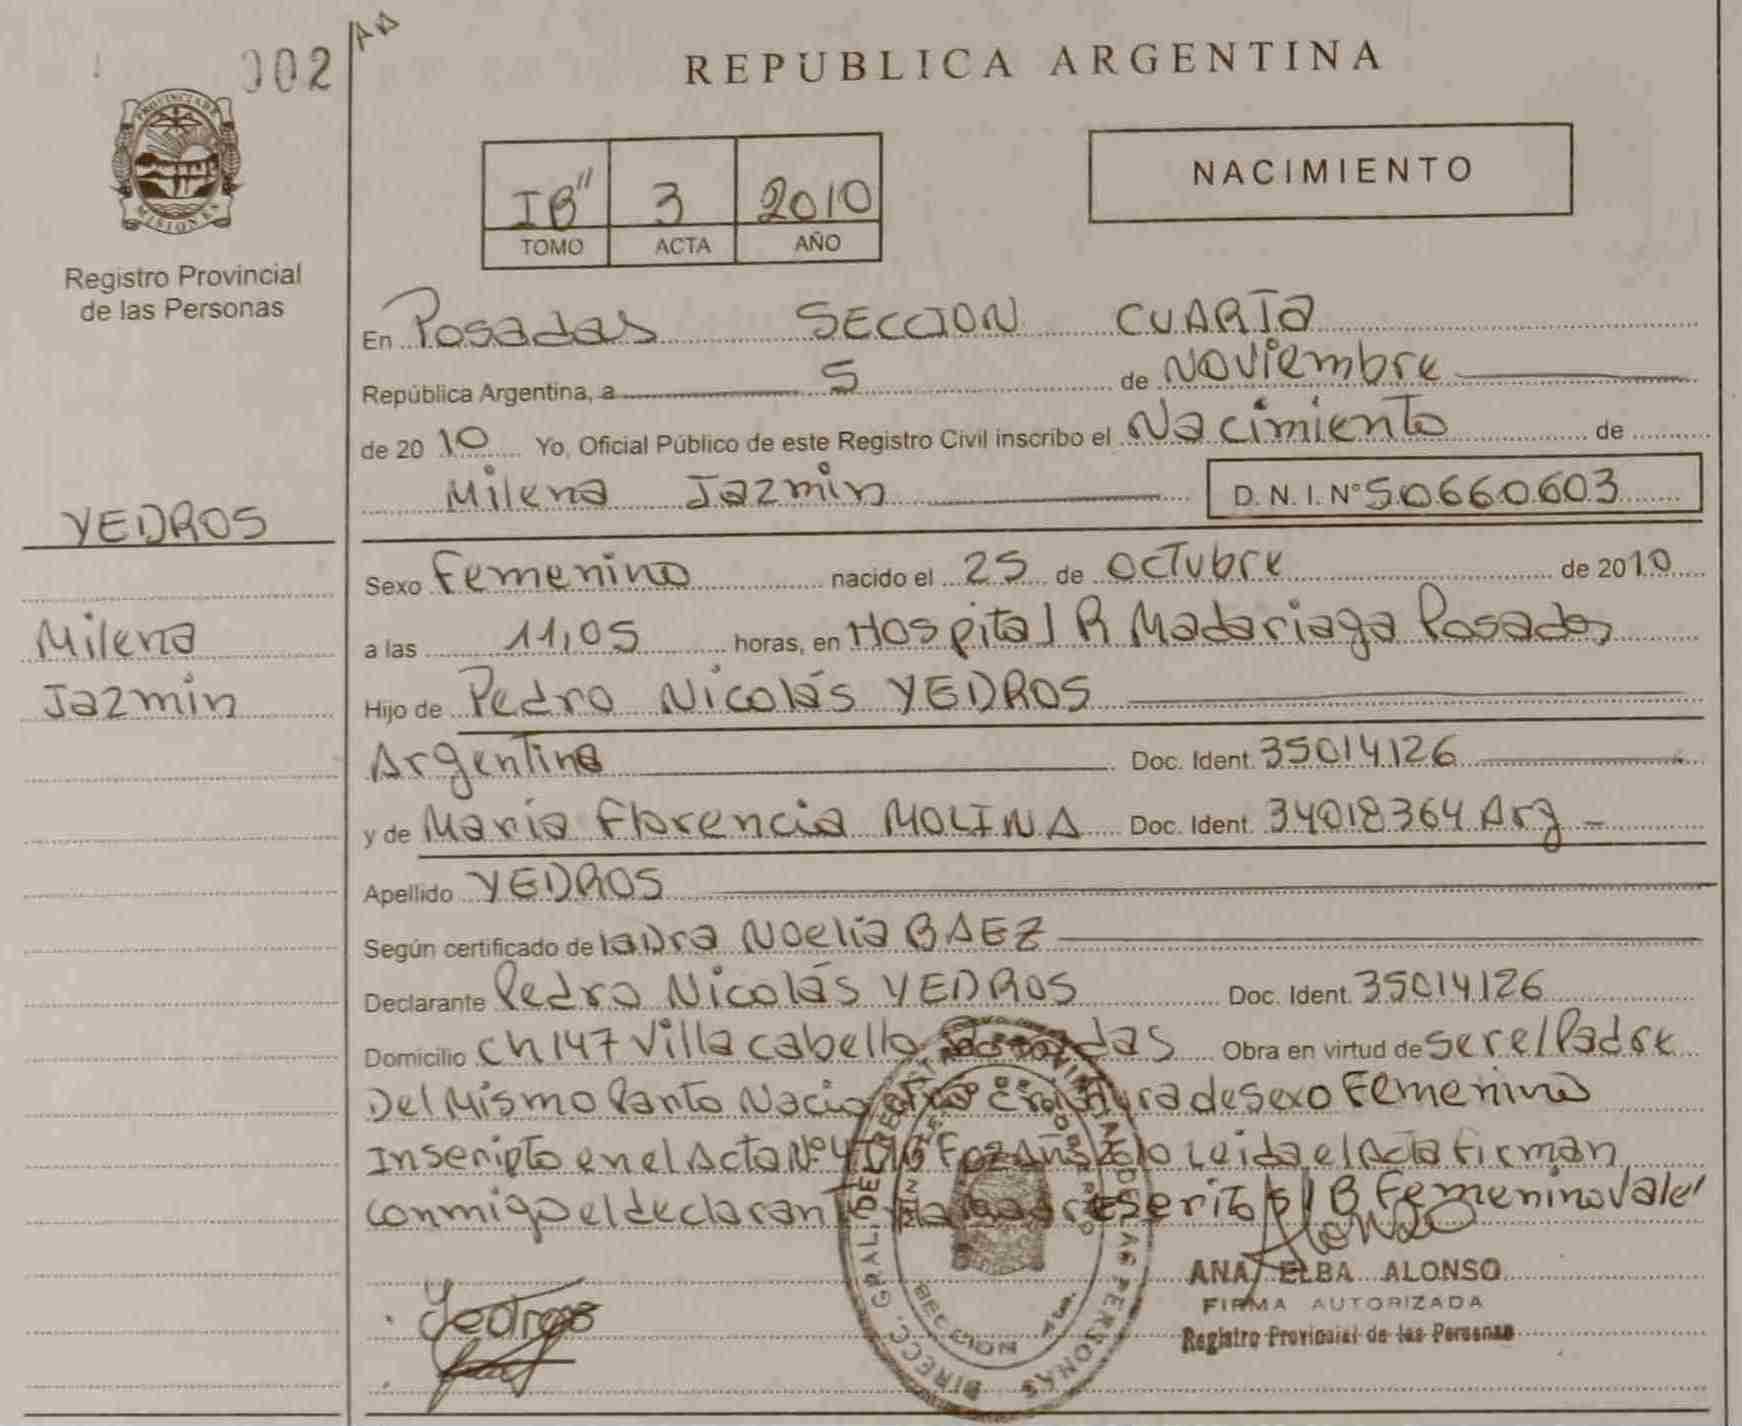 002
REPUBLICA ARGENTINA
PROVINCIA DE
MISIONES
Registro Provincial
de las Personas
IB" 3 2010
TOMO ACTA AÑO
NACIMIENTO
En Posadas SECCION CUARTA
República Argentina, a 5 de Noviembre
de 2010 Yo, Oficial Público de este Registro Civil inscribo el Nacimiento de
Milena Jazmin D.N.I. Nº 50660603
YEDROS
Milena
Jazmin
Sexo Femenino nacido el 25 de Octubre de 2010
a las 11,05 horas, en Hospital R Madariaga Posadas
Hijo de Pedro Nicolás YEDROS
Argentino Doc. Ident. 35014126
y de Maria Florencia MOLINA Doc. Ident. 34018364 Arg
Apellido YEDROS
Según certificado de la Dra Noelia BAEZ
Declarante Pedro Nicolás YEDROS Doc. Ident. 35014126
Domicilio CH 147 Villa Cabello Posadas Obra en virtud de ser el Padre
Del Mismo Parto Nacio otra Criatura de sexo Femenino
Inscripto en el Acta Nº Año 2010 Leida el Acta Firman
conmigo el declarante B Femenino Vale"
ANA ELBA ALONSO
FIRMA AUTORIZADA
Registro Provincial de las Personas
Yedros
DIRECC. GRAL. DE PERSONAS